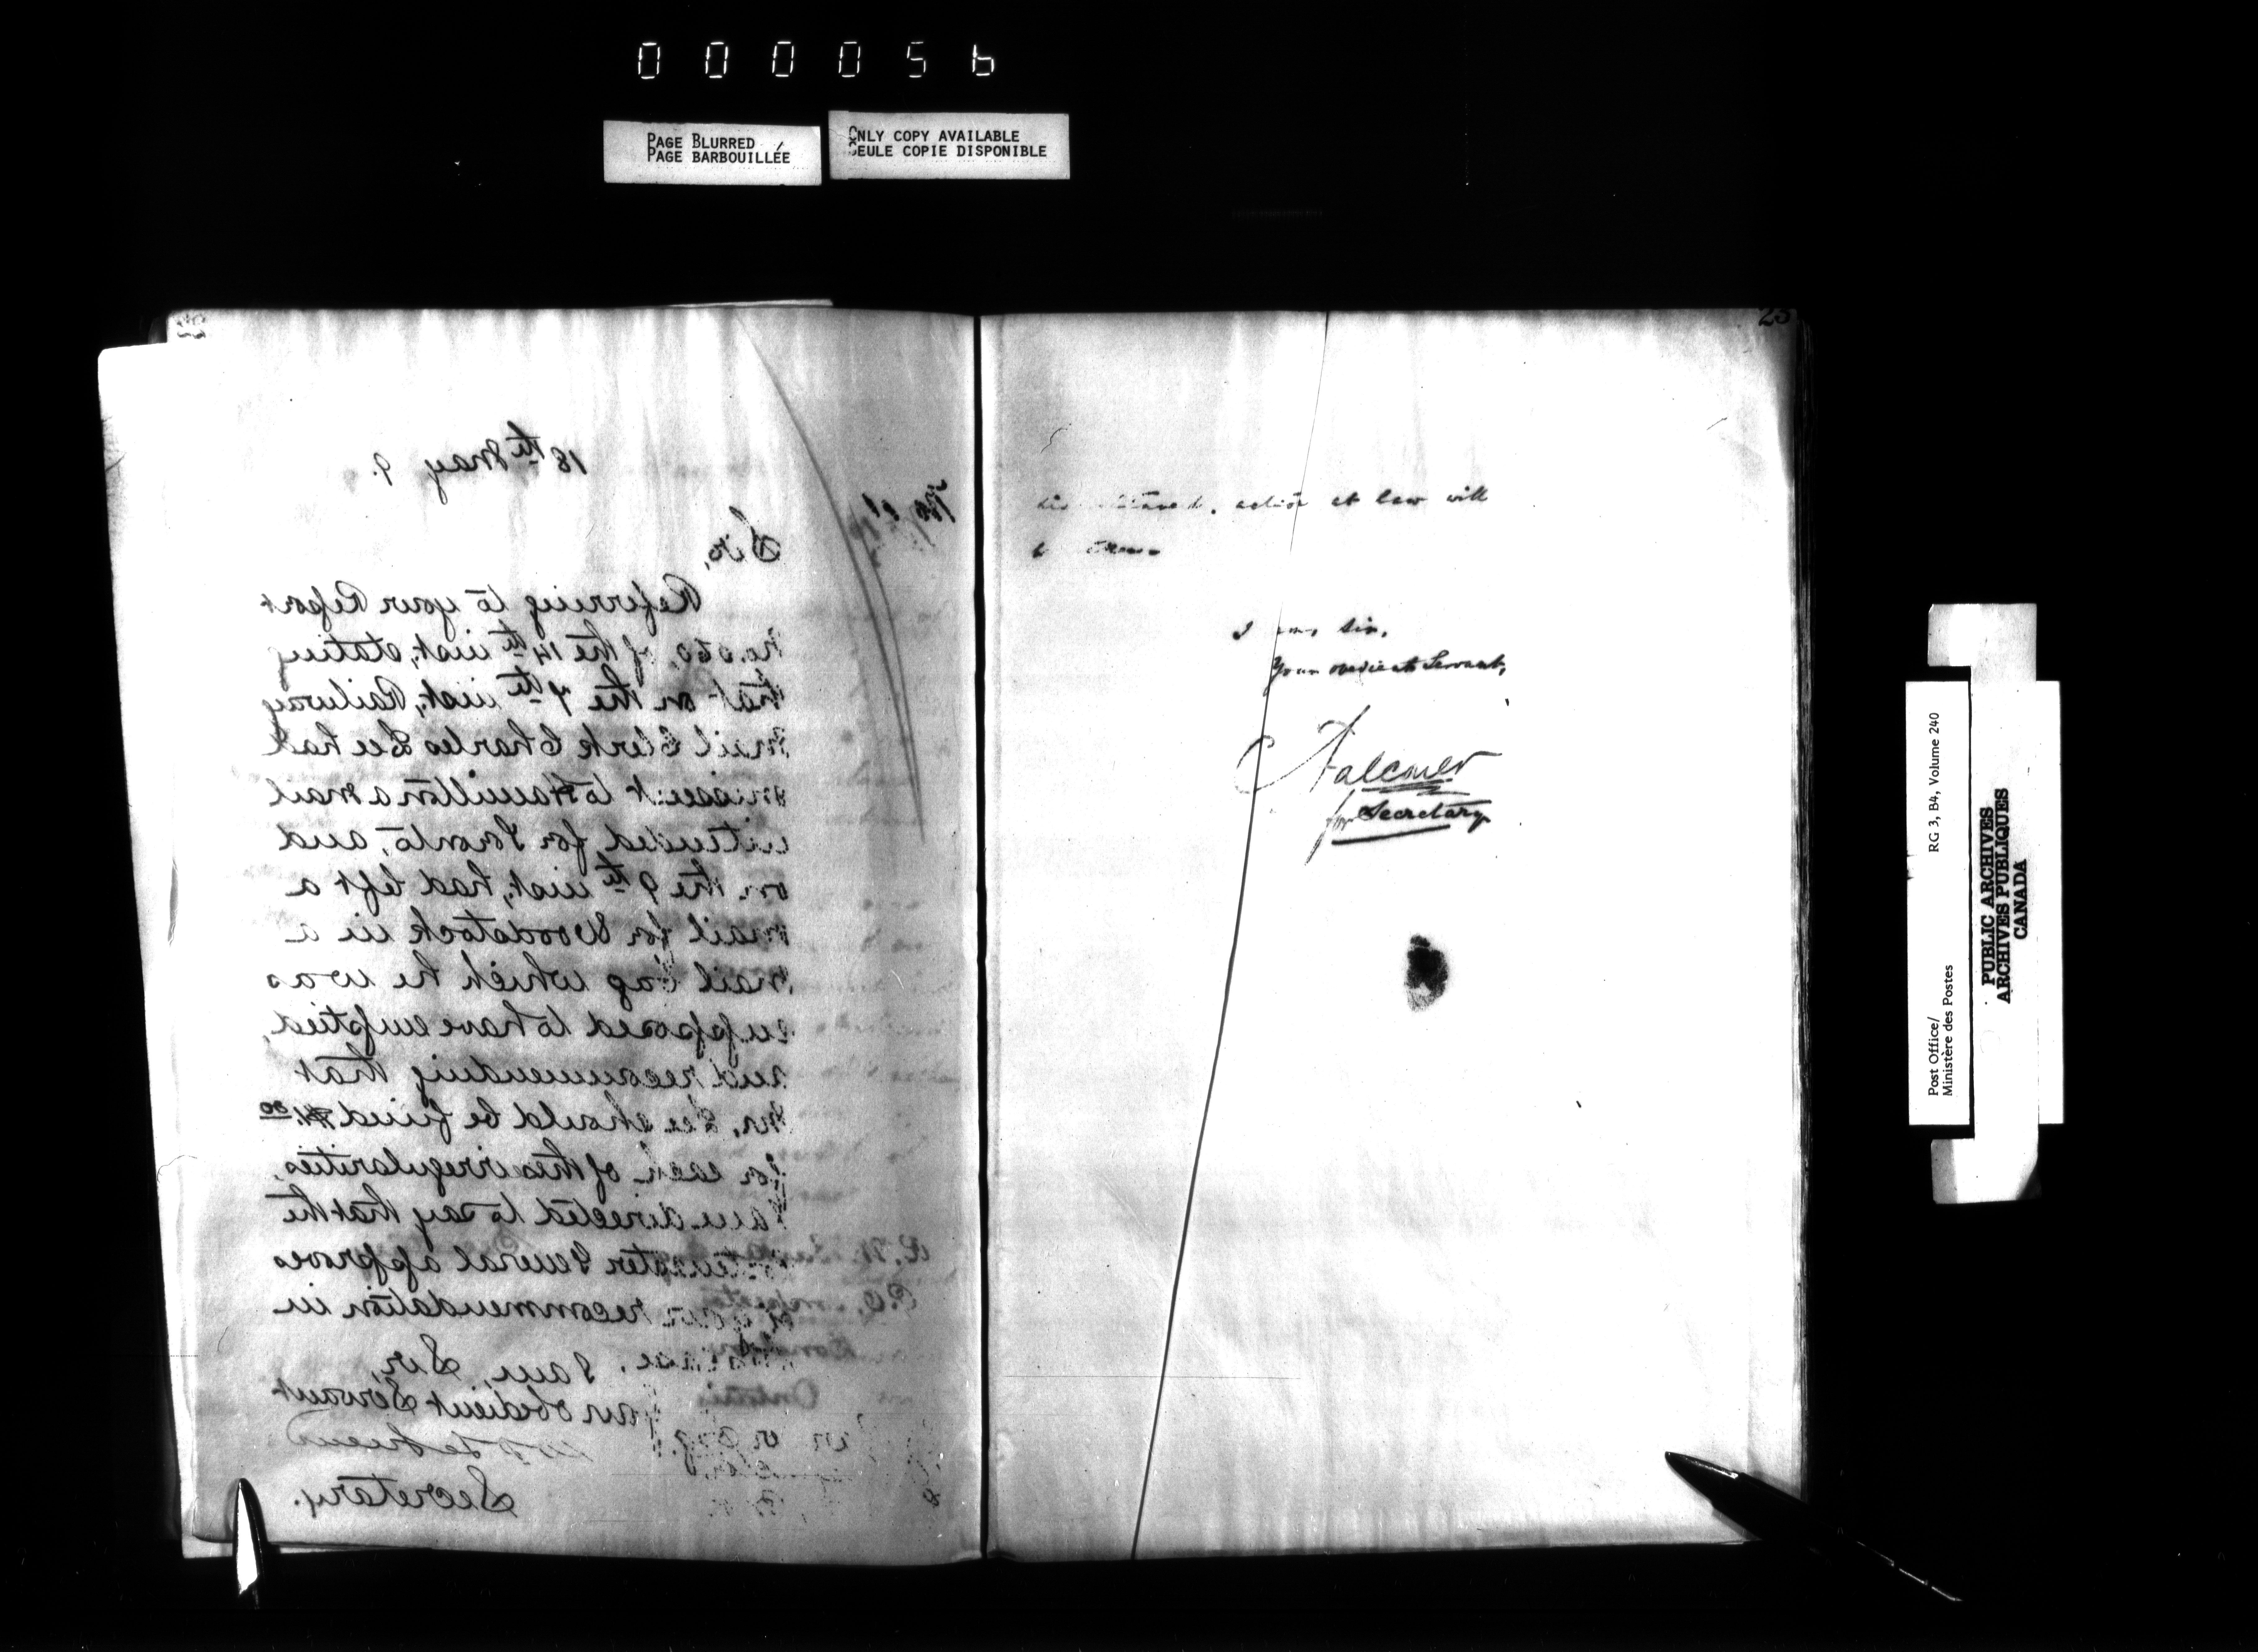 000056
PAGE BLURRED
PAGE BARBOUILLÉE
ONLY COPY AVAILABLE
SEULE COPIE DISPONIBLE
18th May 9.
Sir,
Referring to your Report
No. 060, of the 14th inst., stating
that on the 7th inst., Railway
Mail Clerk Charles Lee had
missent to Hamilton a mail
intended for Toronto, and
on the 9th inst., had left a
mail for Woodstock in a
mail bag which he was
supposed to have emptied,
and recommending that
Mr. Lee should be fined $1.00
for each of these irregularities,
I am directed to say that the
Postmaster General approves
of your recommendation in
case.
I am, Sir,
Your obedient Servant
Secretary.
P.O. Inspector
London
Ontario
23
action at law will
I am, Sir,
Your obedient Servant,
C Falconer
for Secretary
Post Office/
Ministère des Postes
RG 3, B4, Volume 240
PUBLIC ARCHIVES
ARCHIVES PUBLIQUES
CANADA